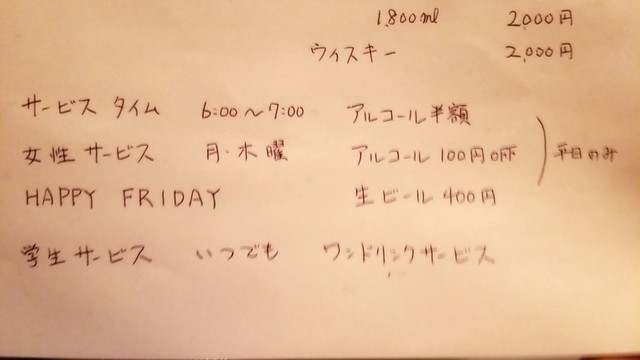 1,800ml 2,000円
ウィスキー 2,000円
サービスタイム 6:00〜7:00 アルコール半額
女性サービス 月・木曜 アルコール100円off 平日のみ
HAPPY FRIDAY 生ビール400円
学生サービス いつでも ワンドリンクサービス